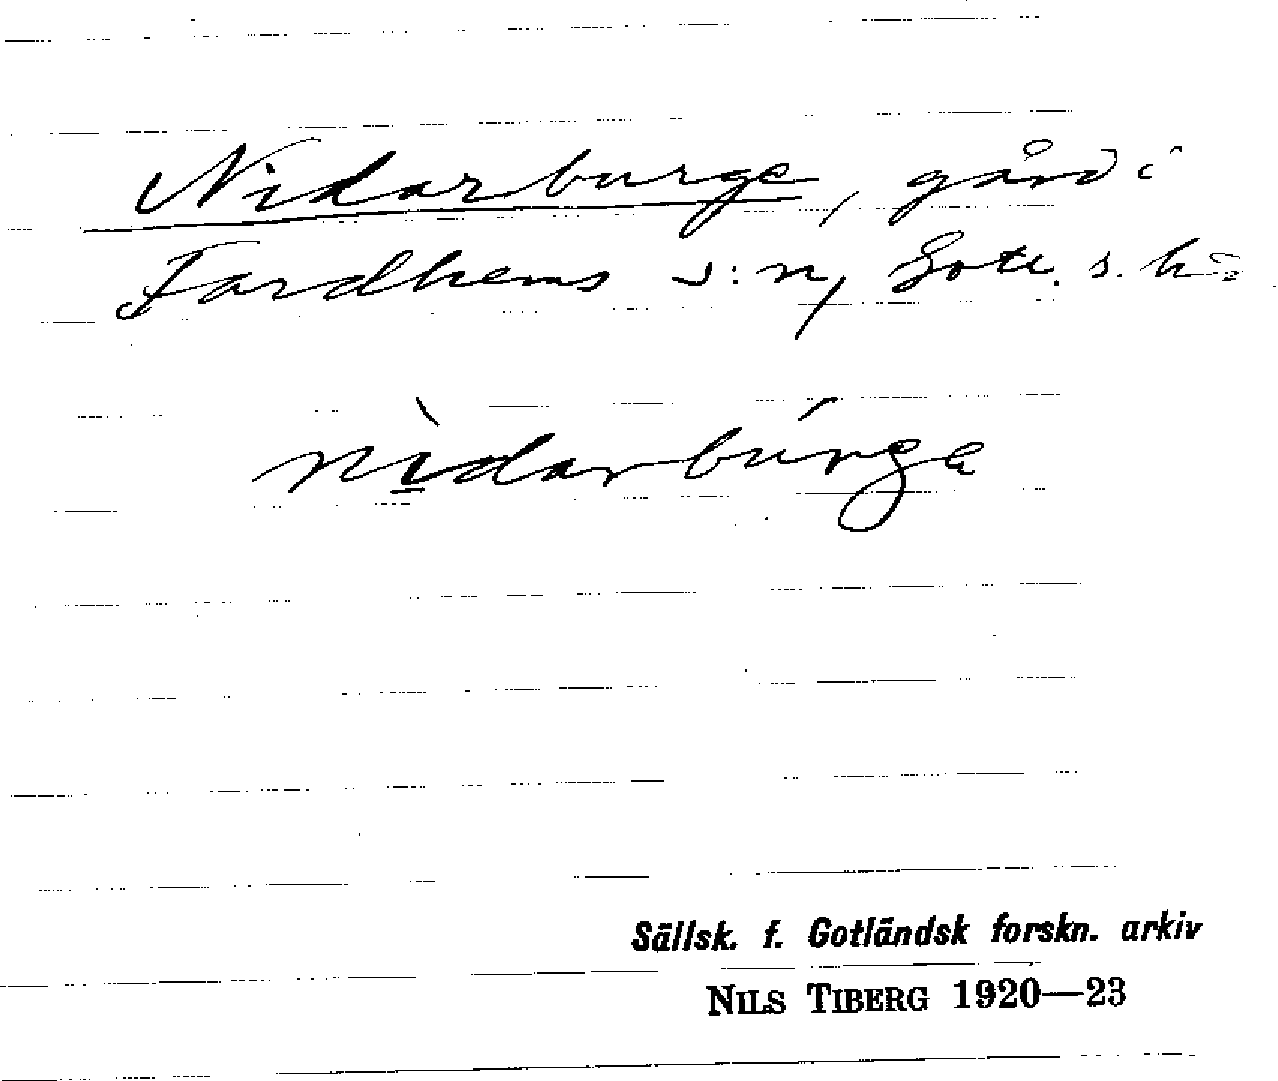 Nidarburge, gård i
Fardhems s:n, Gotl. s. hd
nìdarbúrge
Sällsk. f. Gotländsk forskn. arkiv
NILS TIBERG 1920—23